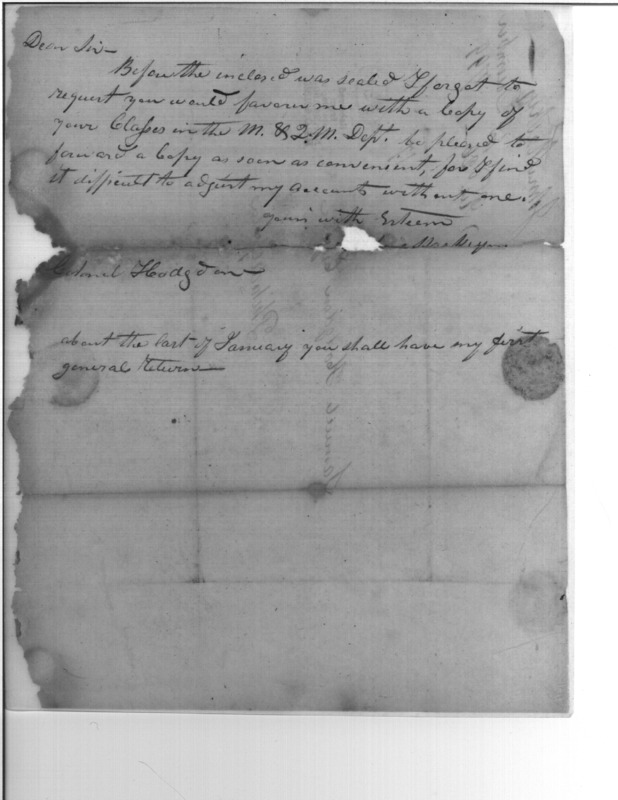 Dear Sir
Before the inclosed was sealed I forgot to
request you would favour me with a Copy of
your Classes in the M. & Q.M. Dept. be pleased to
forward a Copy as soon as convenient, for I find
it difficult to adjust my accounts without one.
yours with Esteem
Colonel Hodgdon
about the last of January you shall have my first
general return